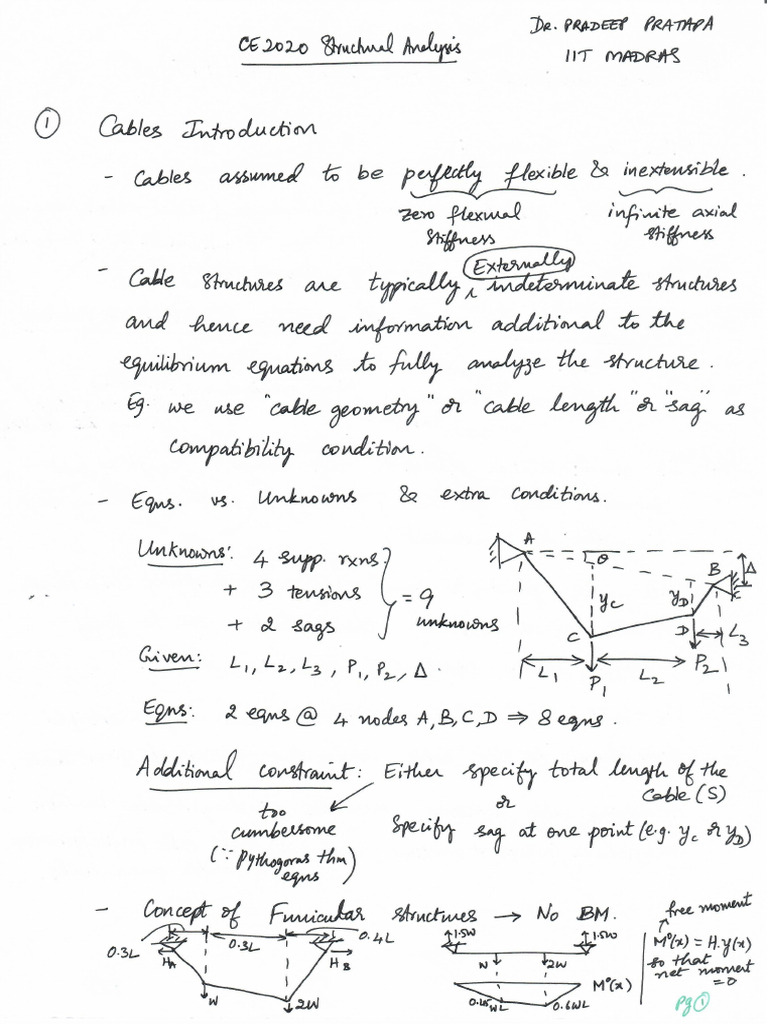 DR. PRADEEP PRATAPA
CE2020 Structural Analysis
IIT MADRAS
① Cables Introduction
- Cables assumed to be perfectly flexible & inextensible.
zero flexural stiffness
infinite axial stiffness
Externally
- Cable structures are typically indeterminate structures
and hence need information additional to the
equilibrium equations to fully analyze the structure.
Eg. we use "cable geometry" or "cable length" or "sag" as
compatibility condition.
- Eqns. vs. Unknowns & extra conditions.
Unknowns: 4 supp. rxns
+ 3 tensions
+ 2 sags
= 9 unknowns
A
θ
B
Δ
y_C
y_D
C
D
L_3
L_1
P_1
L_2
P_2
Given: L_1, L_2, L_3, P_1, P_2, Δ.
Eqns: 2 eqns @ 4 nodes A, B, C, D ⇒ 8 eqns.
Additional constraint: Either specify total length of the
cable (S)
or
specify sag at one point (e.g. y_C or y_D)
too
cumbersome
(∵ pythogoras thm
eqns)
- Concept of Funicular structures → No BM.
0.3L
0.3L
0.4L
H_A
H_B
W
2W
1.5W
1.5W
W
2W
M°(x)
0.45WL
0.6WL
free moment
M°(x) = H.y(x)
so that
net moment
= 0
Pg ①